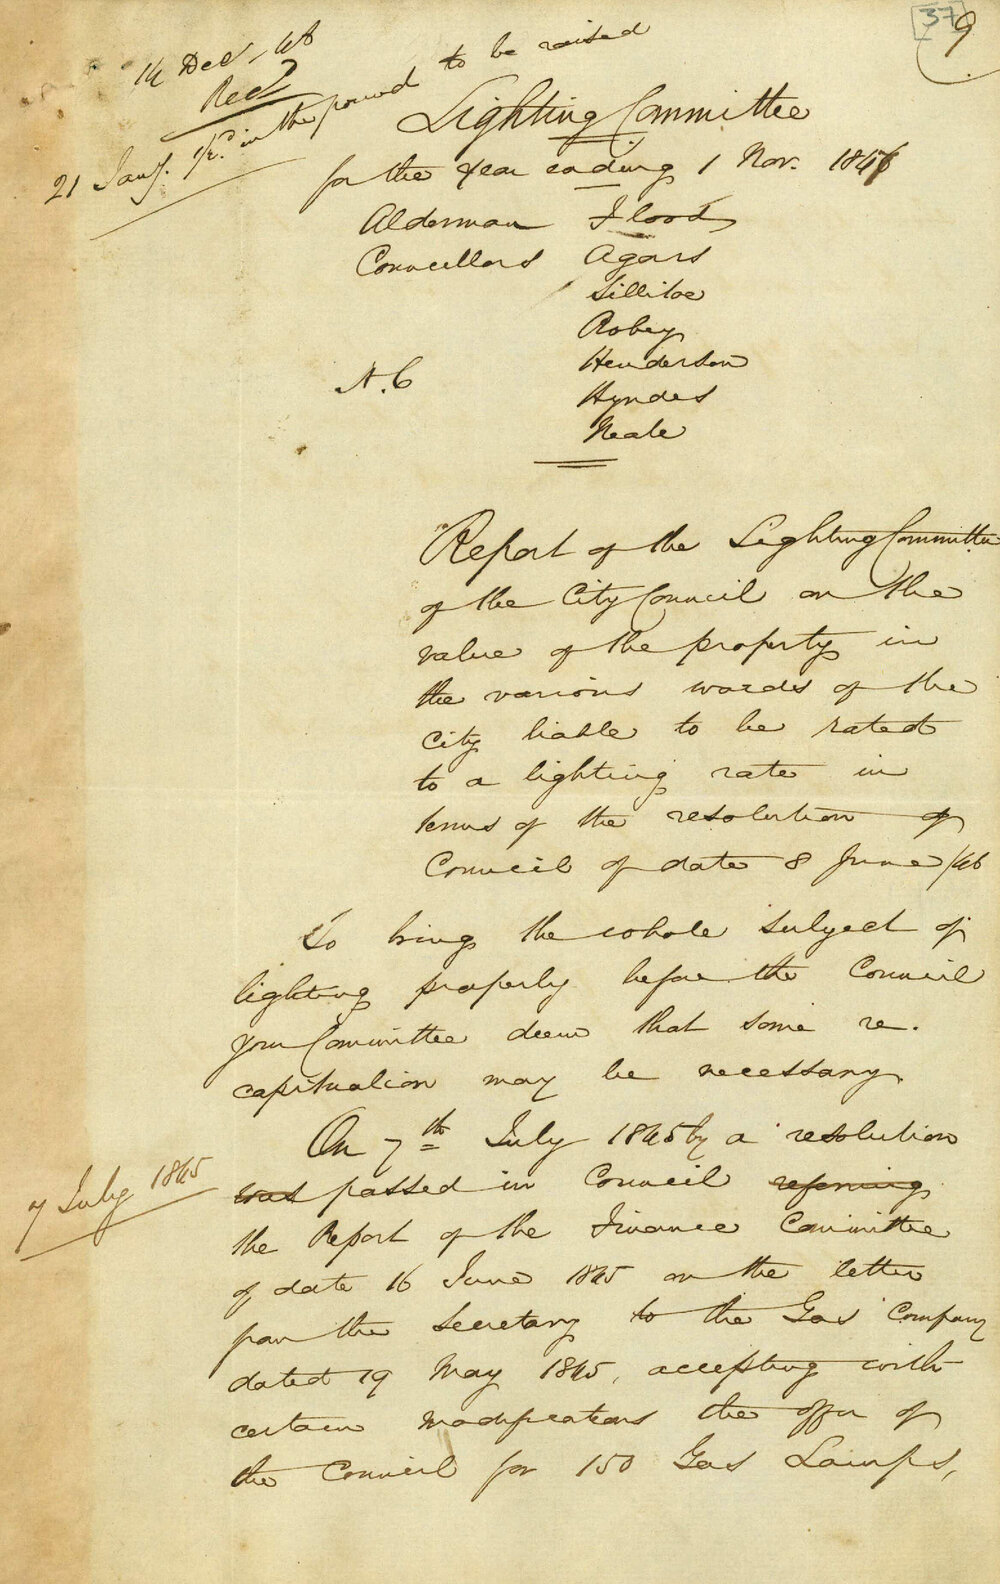 37
9
14 Decr. 46
Recd
21 Jany. 1/2d. in the pound to be raised
Lighting Committee
for the year ending 1 Nov. 1846
Alderman Flood
Councellors Agars
Sillitoe
Robey
Henderson
N. C Hyndes
Neale
Report of the Lighting Committee
of the City Council on the
value of the property in
the various wards of the
City liable to be rated
to a lighting rate in
terms of the resolution of
Council of date 8 June /46
To bring the whole subject of
lighting properly before the Council
your Committee deem that some re.
capitulation may be necessary.
On 7th July 1845 by a resolution
7 July 1845
was passed in Council referring
the Report of the Finance Committee
of date 16 June 1845 on the letter
from the Secretary to the Gas Company
dated 19 May 1845, accepting with
certain modifications the offer of
the Council for 150 Gas Lamps,